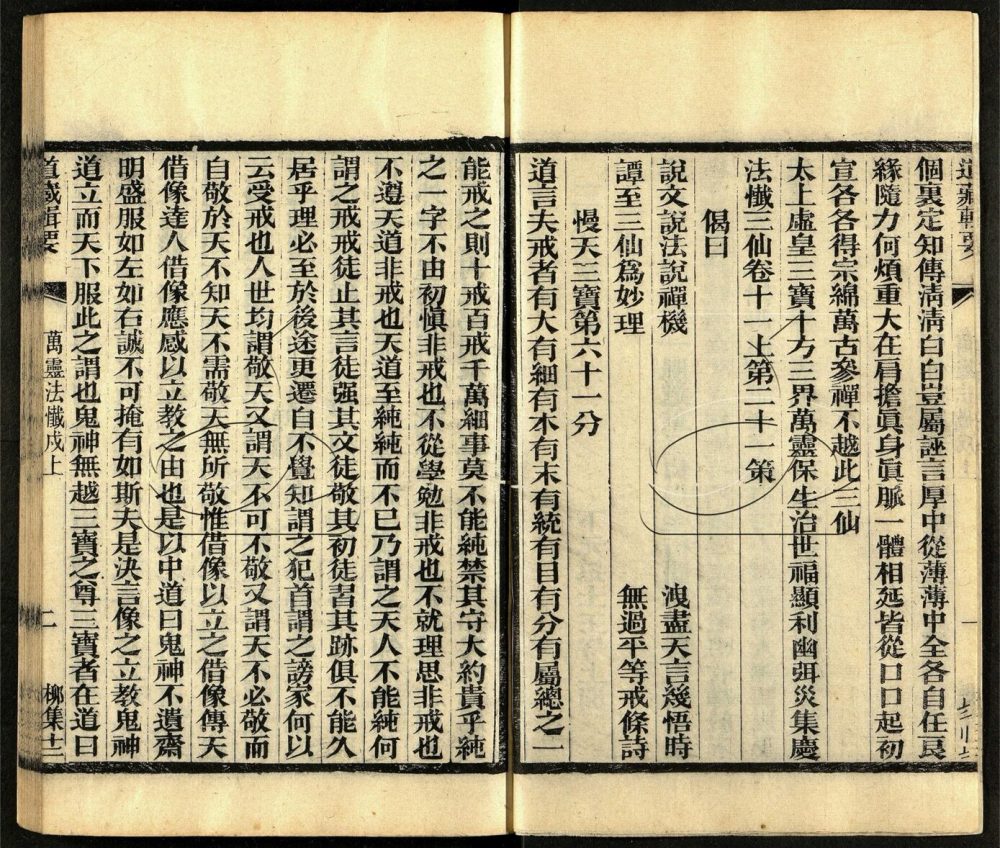 道藏輯要
個裏定知傳淸淸白白豈屬誣言厚中從薄薄中全各自任良
緣隨力何煩重大在肩擔眞身眞脈一體相延皆從口口起初
宣各各得宗綿萬古參禪不越此三仙
太上虛皇三寶十方三界萬靈保生治世福顯利幽弭災集慶
法懺三仙卷十一上第二十一第
偈曰
說文說法說禪機 洩盡天言幾悟時
譚至三仙爲妙理 無過平等戒條詩
慢天三寶第六十一分
道言夫戒者有大有細有本有末有統有目有分有屬總之一
能戒之則十戒百戒千萬細事莫不能純禁其守大約貴乎純
之一字不由初愼非戒也不從學勉非戒也不就理思非戒也
不遵天道非戒也天道至純純而不已乃謂之天人不能純何
謂之戒戒徒止其言徒强其文徒敬其初徒習其跡俱不能久
居乎理必至於後途更遷自不覺知謂之犯首謂之謗家何以
云受戒也人世均謂敬天又謂天不可不敬又謂天不必敬而
自敬於天不知天不需敬天無所敬惟借像以立之借像傳天
借像達人借像應感以立教之由也是以中道曰鬼神不遺齋
明盛服如左如右誠不可掩有如斯夫是決言像之立教鬼神
道立而天下服此之謂也鬼神無越三寶之尊三寶者在道曰
道藏輯要 萬靈法懺成上 二 柳集十二